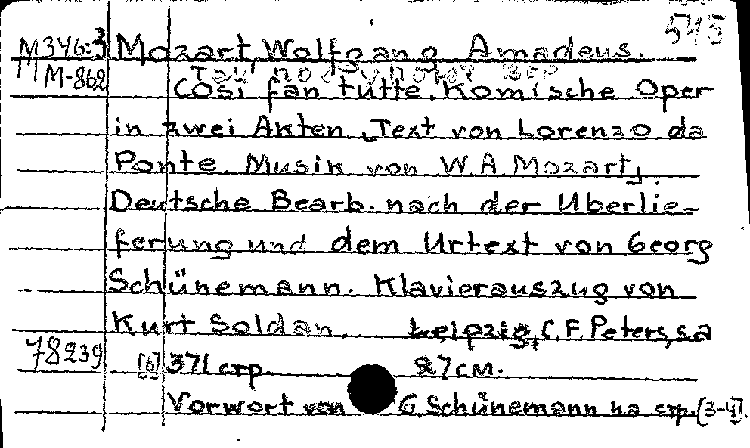 545
M346:3 Mozart, Wolfgang Amadeus.
M-862
Così fan tutte. Komische Oper
in zwei Akten. Text von Lorenzo da
Ponte. Musik von W. A. Mozart,
Deutsche Bearb. nach der Überlie-
ferung und dem Urtext von Georg
Schünemann. Klavierauszug von
Kurt Soldan. Leipzig, C. F. Peters, s.a
78239 [6] 371 стр. 27 см.
Vorwort von G. Schünemann на стр. [3-4].